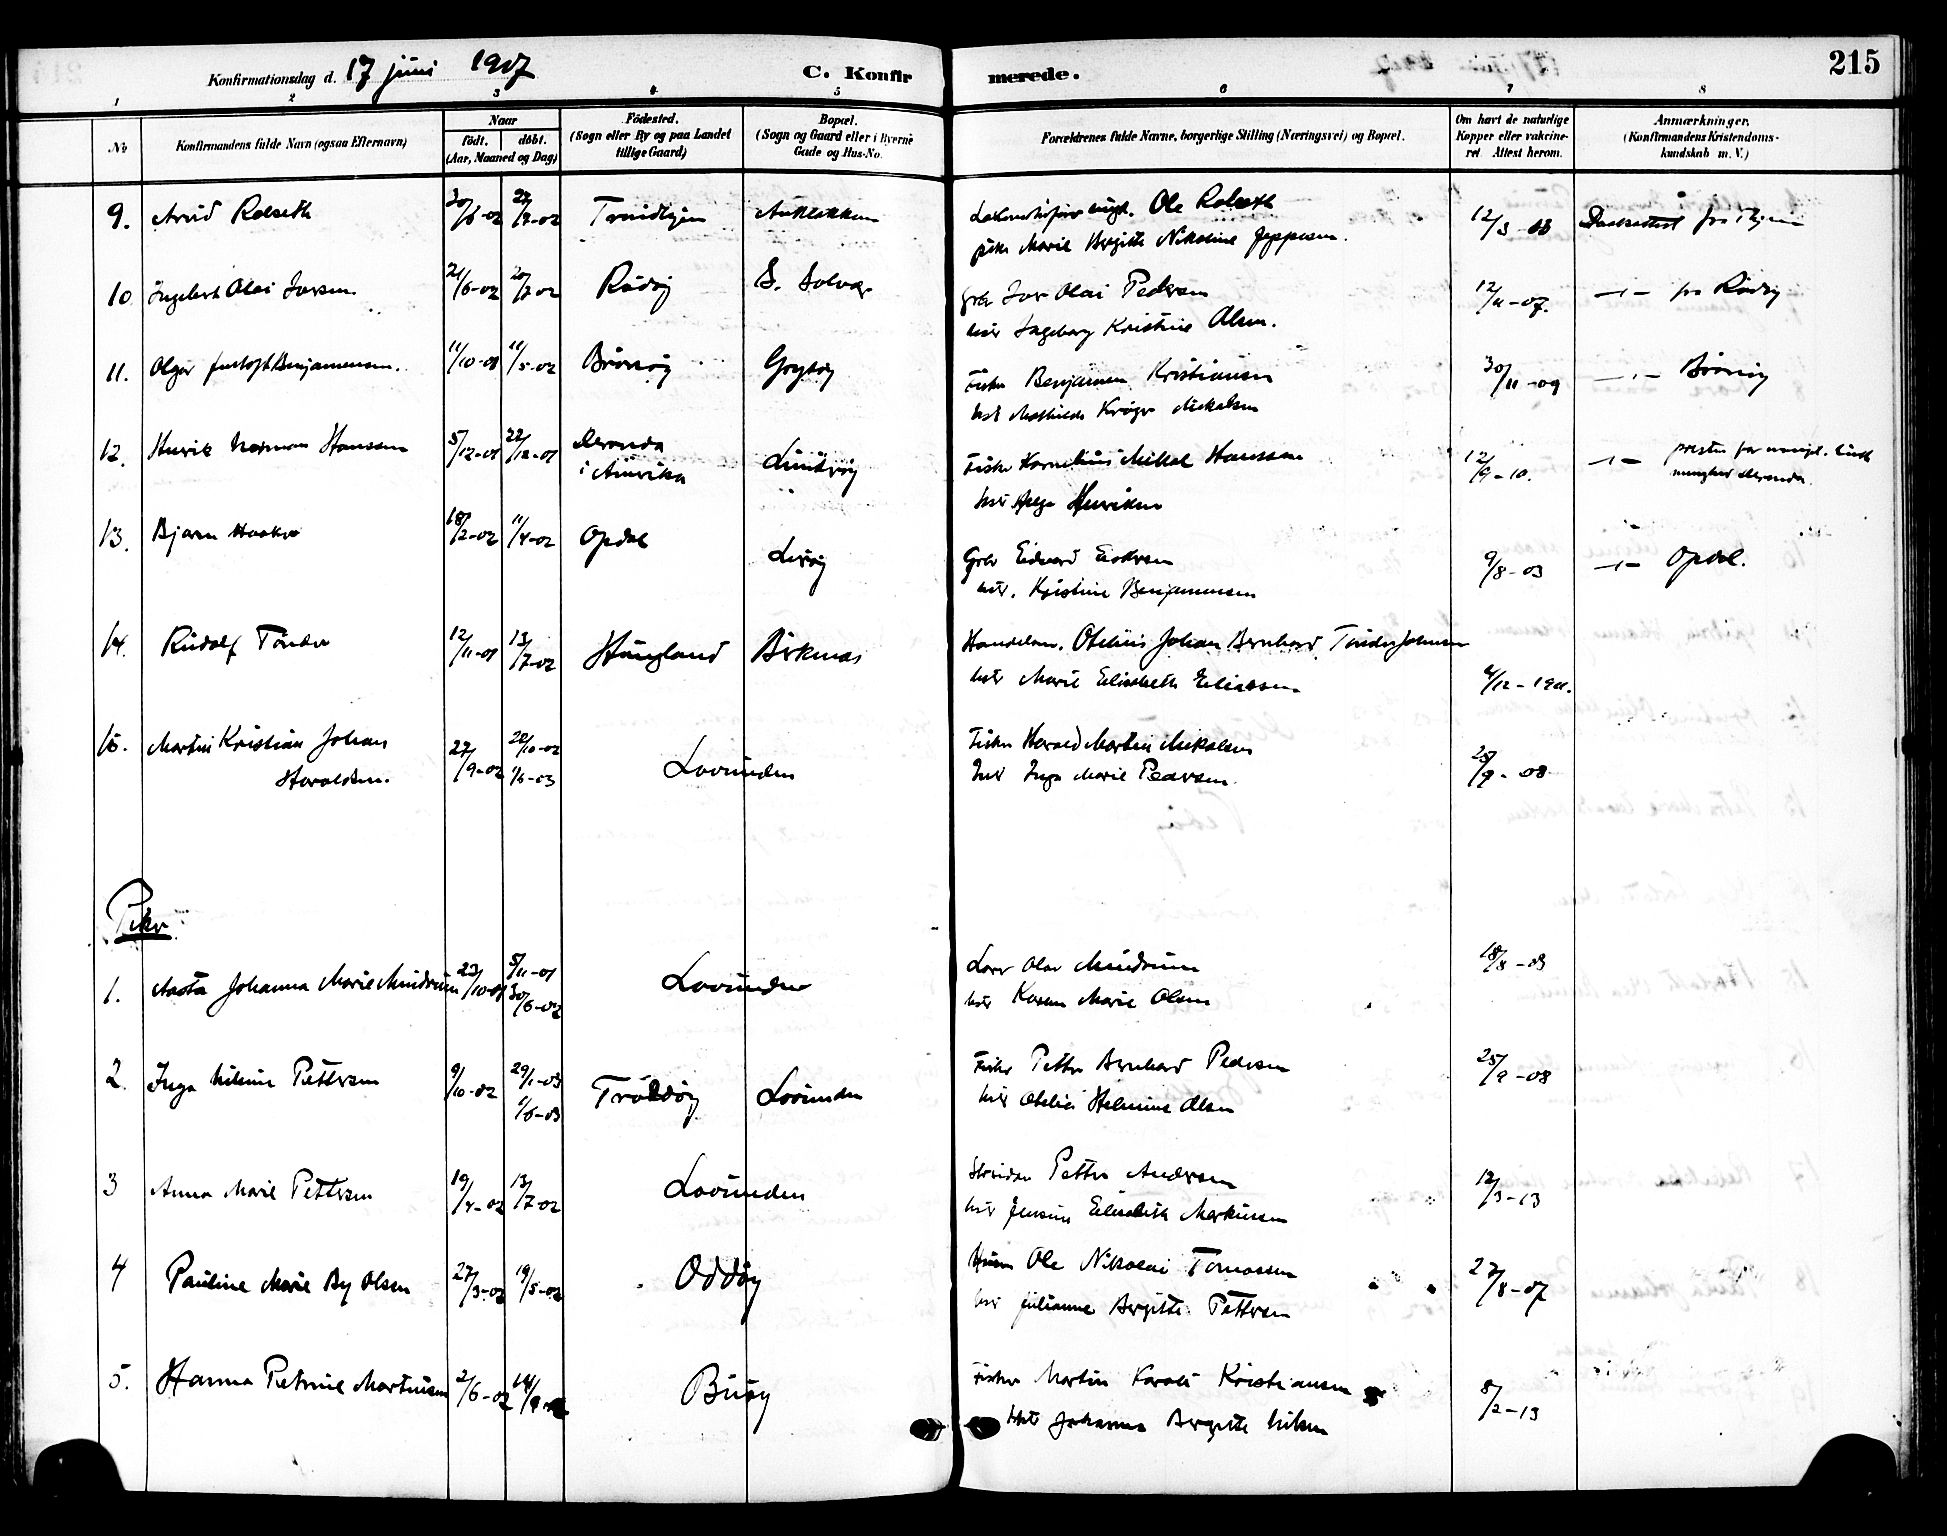 215
Konfirmationsdag d. 17 juni 1917
C. Konfirmerede.
1 2 3 4 5 6 7 8
No
Konfirmandens fulde Navn (ogsaa Efternavn)
Naar
født. døbt.
(Aar, Maaned og Dag)
Fødested.
(Sogn eller By og paa Landet
tillige Gaard)
Bopæl.
(Sogn og Gaard eller i Byerne
Gade og Hus-No.
Forældrenes fulde Navne, borgerlige Stilling (Næringsvei) og Bopæl.
Om havt de naturlige
Kopper eller vakcine-
ret. Attest herom.
Anmærkninger,
(Konfirmandens Kristendoms-
kundskab m. V.)
9. Arvid Rolseth 30/6-02 27/7-02 Trondhjem
Ole Rolseth
pike Marie Bergitte Nikoline Jeppesen.
12/3-03 Daabsattest fra Thjem
10. Ingebert Olai Iversen 21/6-02 20/7-02 Rødøy S. Solvær
Iver Olai Pedersen
hust Ingeborg Kristine Olsen.
12/11-07. —„— fra Rødøy
11. Olger Benjaminsen. 11/10-01 11/5-02 Brønnøy
Fisker Benjamin Kristiansen
hust Mathilde Krøger Mikalsen
30/11-09 —„— Brønnøy
12. Henrik Norman Hanssen 5/12-01 22/12-01
i Amerika
Fisker Kornelius Mikal Hanssen
hust Helga Henriksen
12/9-10. —„—
13. Bjarne 18/2-02 11/4-02 Opdal Lurøy
Edvard
hust. Kristine Benjaminsen
9/8-03 —„— Opdal.
14. Rudolf Tønder 12/11-01 13/7-02 Haugland Birknes
Handelsm. Otelius Johan Bernhard Tønder Johnsen
hust Marie Elisabeth Eliassen
4/12-1911.
15. Martin Kristian Johan
Haraldsen.
27/9-02 28/10-02
1/6-03
Lovunden
Fisker Harald Martin Mikalsen
hust Inga Marie Pedersen.
25/9-08
Piker
1. Aasta Johanna Marie Mindrum 23/10-01 5/11-01
30/6-02
Lovunden
Olav Mindrum
hust Karen Marie Olsen
18/8-03
2. Inga Pettersen 9/10-02 29/1-03
1/6-03
Lovunden
Fisker Petter Bernhard Pedersen
hust Otelie Helmine Olsen
25/9-08
3 Anna Marie Pettersen 19/4-02 13/7-02 Lovunden
Petter Andersen
hust Jensine Elisabeth Markussen
12/3-13
4 Pauline Marie By Olsen 27/3-02 19/5-02 Oddøy
Husm Ole Nikolai Tomassen
hust Julianne Bergitte Pettersen
27/8-07
5. Hanna Petrine Martinsen 2/6-02 Buøy
Fisker Martin Karoli Kristiansen
Hust Johanna Bergitte Nilsen
8/2-13